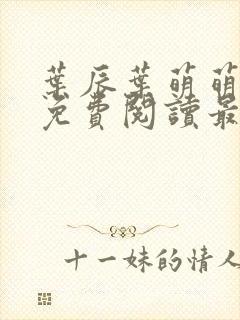 葉辰葉萌萌
免費閱讀最
十一妹的情人